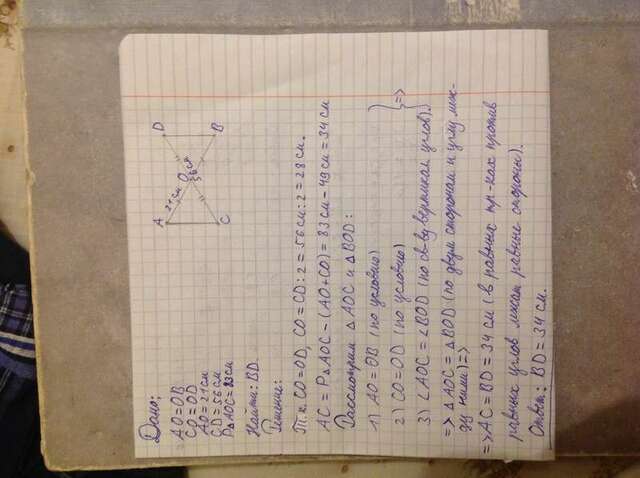 Дано:
AO=OB
CO=OD
AO=21см
CD=56см
P△AOC=83см
Найти: BD.
A
21см
O
56см
D
C
B
Решение:
Т.к. CO=OD, CO=CD:2=56см:2=28см.
AC=P△AOC-(AO+CO)=83см-49см=34см
Рассмотрим △AOC и △BOD:
1) AO=OB (по условию)
2) CO=OD (по условию)
3) ∠AOC=∠BOD (по св-ву вертикал. углов). =>
=> △AOC=△BOD (по двум сторонам и углу меж-
ду ними)=>
=>AC=BD=34см (в равных тр-ках против
равных углов лежат равные стороны).
Ответ: BD=34см.